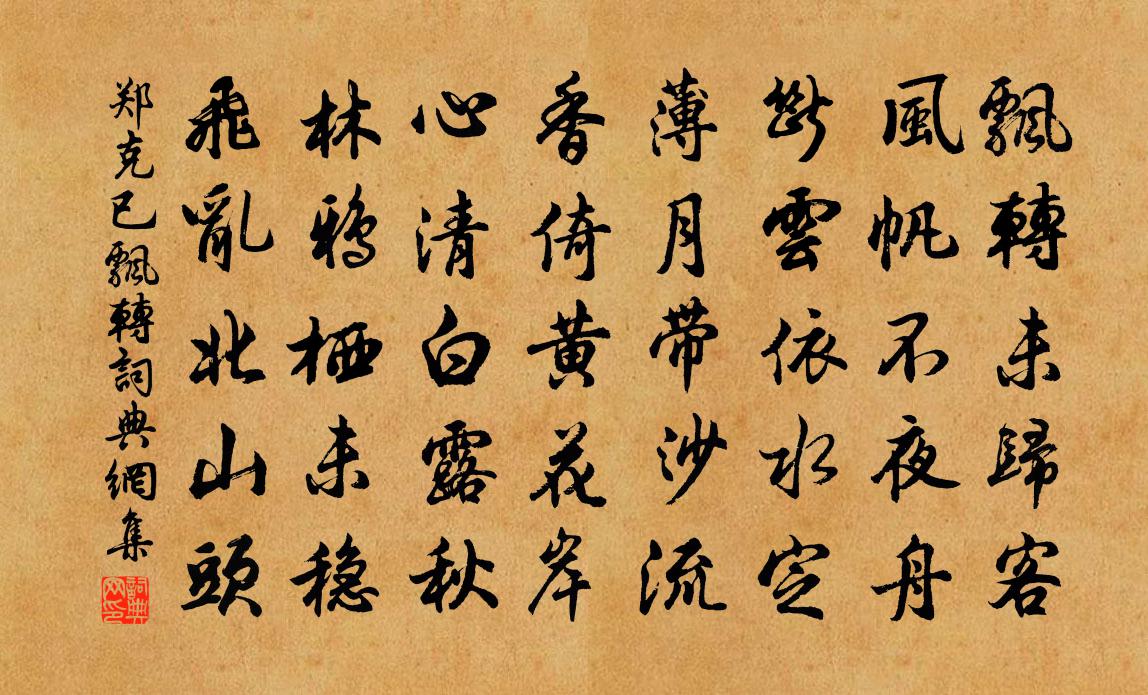 飄轉未歸客
風帆不夜舟
斷雲依水定
薄月带沙流
香倚黄花岸
心清白露秋
林鴉栖未穏
飛亂北山頭
郑克已飄轉詞典網集
詞典网印